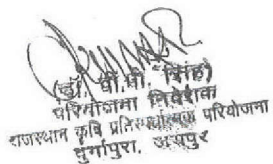 (डॉ. पी.पी. सिंह)
परियोजना निदेशक
राजस्थान कृषि प्रतिस्पर्धात्मक परियोजना
दुर्गापुरा, जयपुर